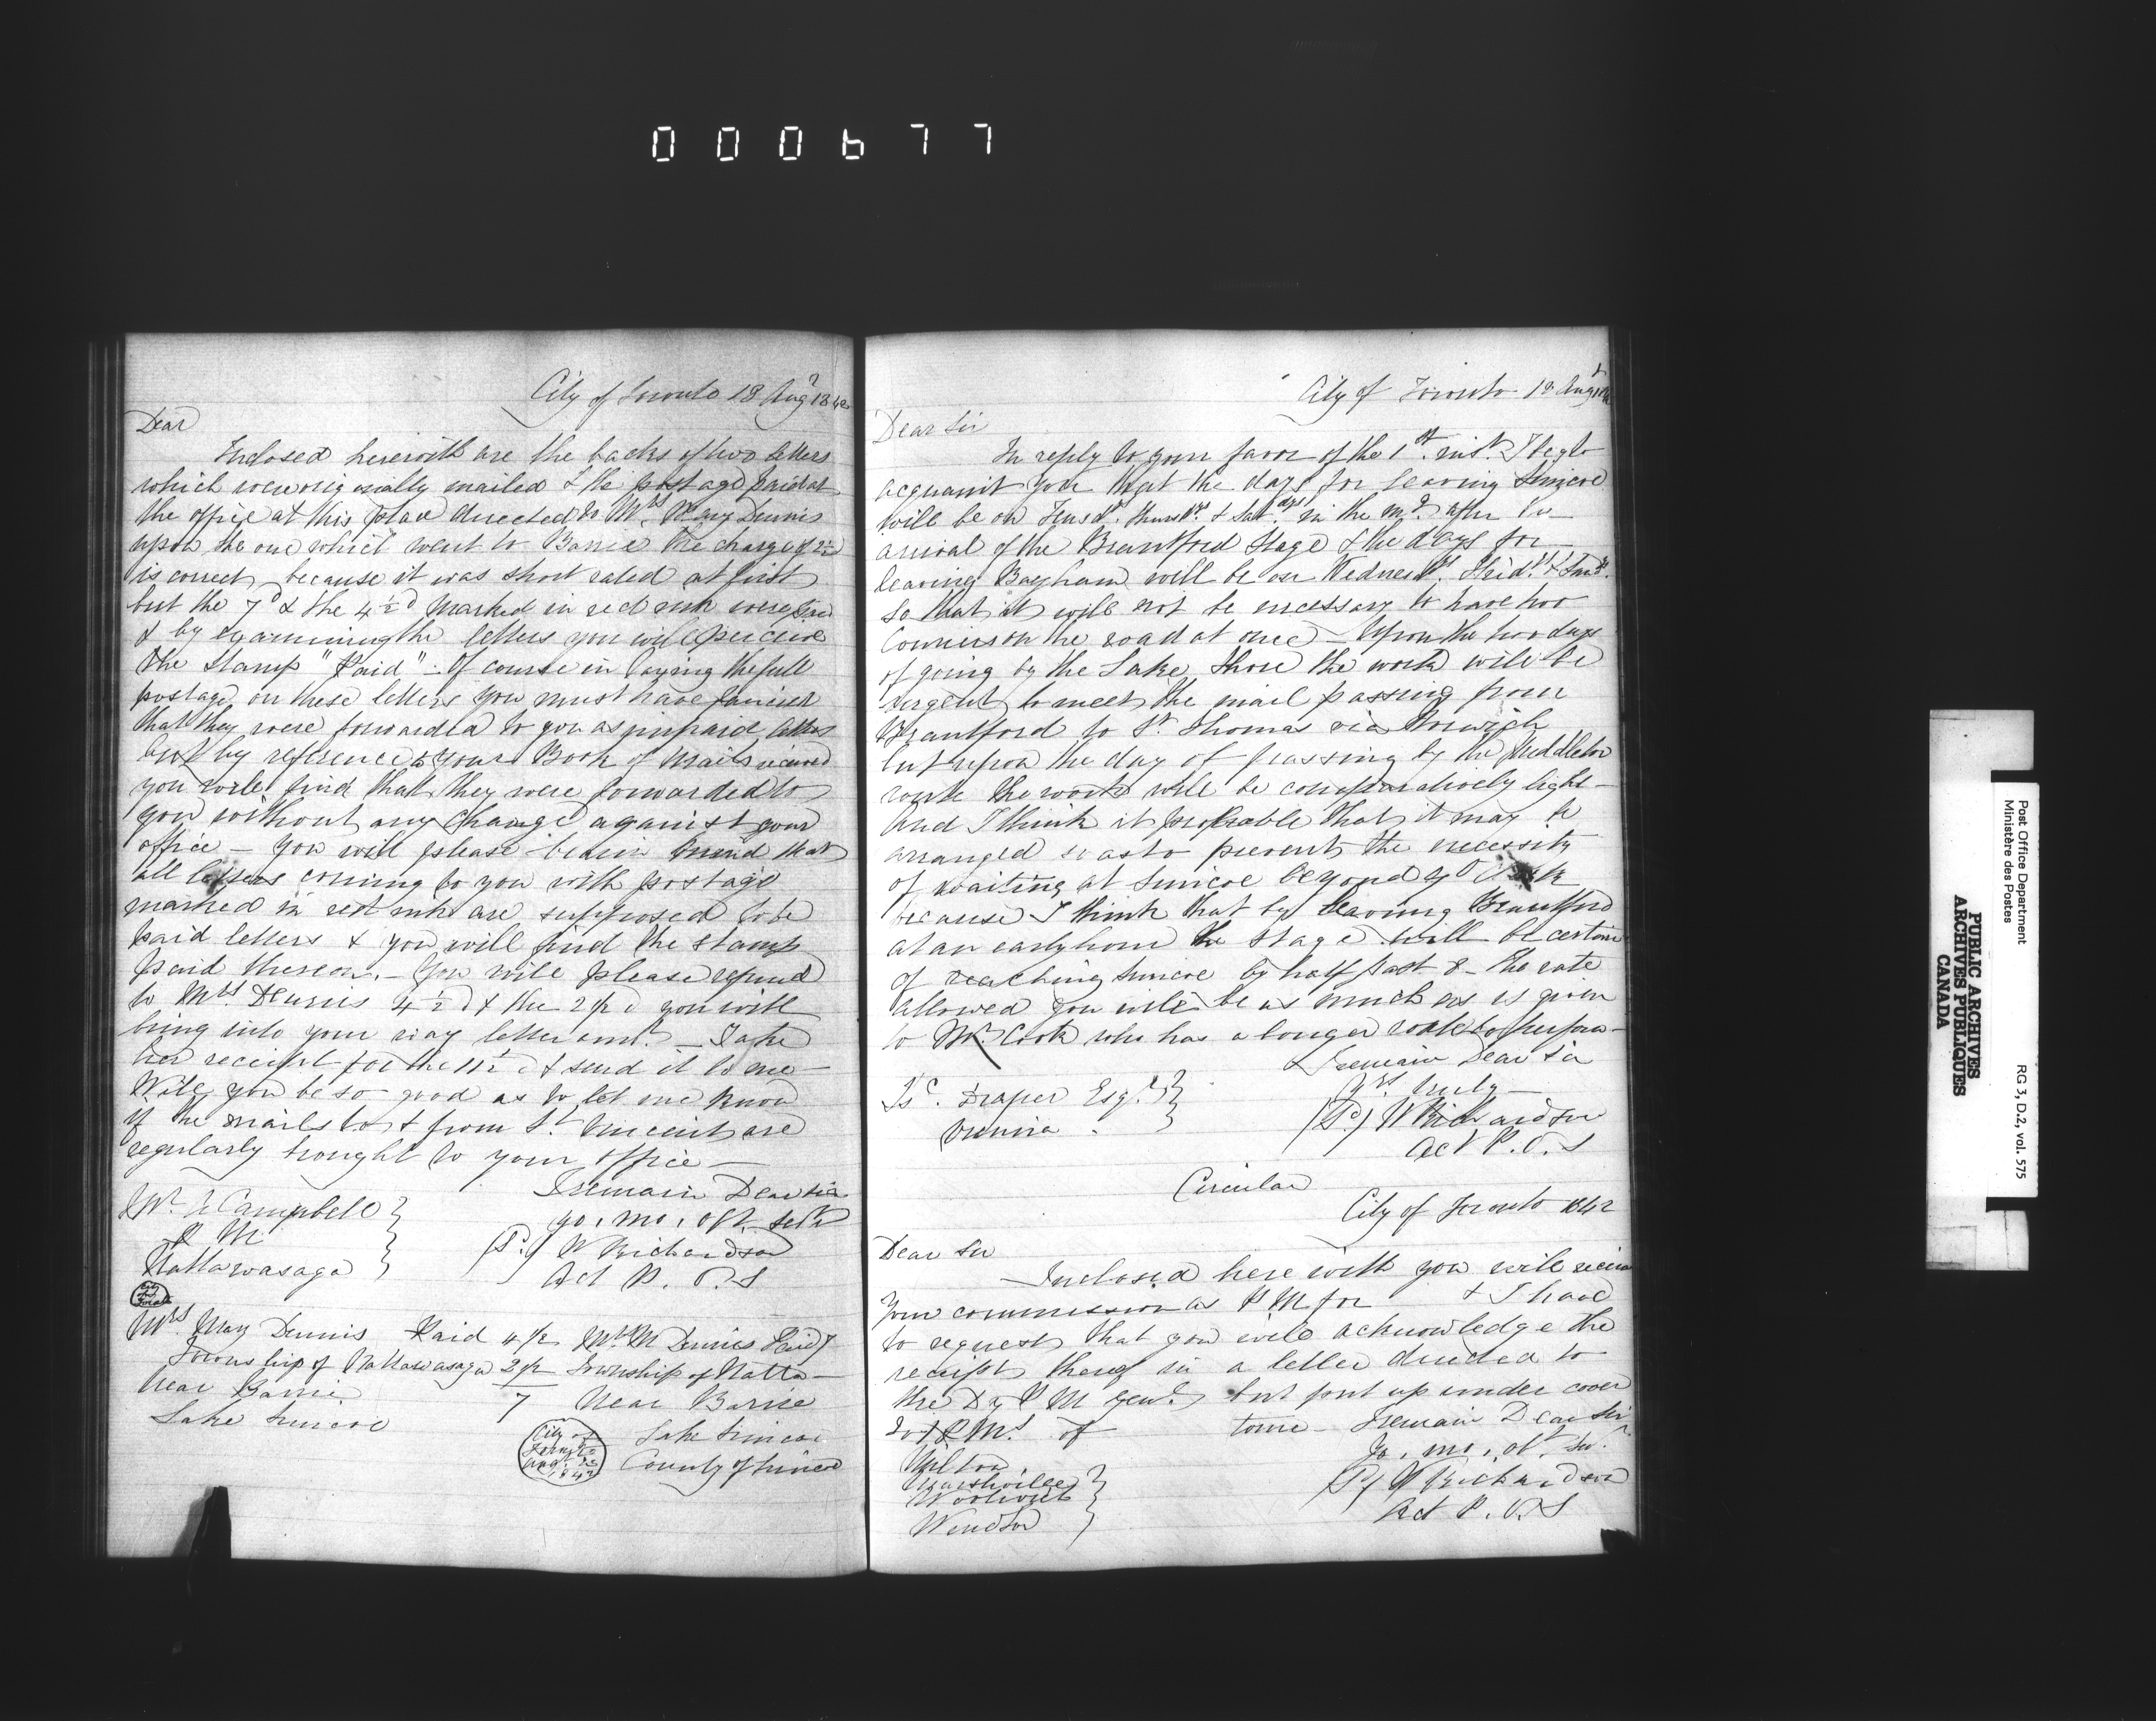 000677
City of Toronto 18 Augt 1842
Dear
Inclosed herewith are the backs of two letters
which were originally mailed & the postage paid at
the office at this place directed to Mrs. Mary Dennis
upon the one which went to Barrie the charge of 2½
is correct, because it was short rated at first
but the 7d & the 4½d marked in red ink were paid
& by examining the letters you will perceive
the Stamp "Paid" - Of course in laying the full
postage on these letters you must have fancied
that they were forwarded to you as unpaid letters
but by reference to your Book of Mails received
you will find that they were forwarded to
you without any charge against your
office - You will please bear in mind that
all letters coming to you with postage
marked in red ink are supposed to be
paid letters & you will find the stamp
paid thereon. - You will please refund
to Mrs Dennis 4½d & the 2½d you will
bring into your way letter amt. - Take
her receipt for the 11½d & send it to me -
Will you be so good as to let me know
if the mails to & from St. Vincent are
regularly brought to your office -
I remain Dear Sir
yo. mo. obt. servt
Campbell
P M
Nattawasaga
(Sd.) W Richardson
Act P. O. S
City of Toronto
Mrs. Mary Dennis Paid 4½
Township of Nattawasaga 2½
near Barrie 7
Lake Simcoe
Mrs. M Dennis Paid 7
Township of Natta-
Near Barrie
Lake Simcoe
County of Simcoe
City of Toronto Augt 1842
City of Toronto 18 Augt 1842
Dear Sir
In reply to your favor of the 1st. inst. I beg to
acquaint you that the days for leaving Simcoe
will be on Tuesds. Thursds. & Satdays in the mg. after the
arrival of the Brantford Stage & the days for
leaving Bayham will be on Wednesds. Frids. &
so that it will not be necessary to have two
Couriers on the road at once - Upon the two days
of going by the Lake Shore the work will be
urgent to meet the mail passing from
Brantford to St. Thomas via Norwich
but upon the day of passing by the Middleton
route the work will be comparatively light -
and I think it probable that it may be
arranged so as to prevent the necessity
of waiting at Simcoe beyond 9 O'Clock
because I think that by leaving Brantford
at an early hour the Stage will be certain
of reaching Simcoe by half past 8 - the rate
allowed you will be as much as is given
to Mr. Cook who has a longer route to perform -
I remain Dear Sir
yrs. truly -
Draper Esqr.
Vienna.
(Sd) W Richardson
Act P. O. S
Circular
City of Toronto 1842
Dear Sir
Inclosed here with you will receive
your commission as P M for & I have
to request that you will acknowledge the
receipt thereof in a letter directed to
the Dy P M Genl. but put up under cover
to PM. of town - I remain Dear Sir
Yo. mo. obt. Sr.
Milton
Marshville
Woolwich
Windsor
(Sd) W Richardson
Act P. O. S
PUBLIC ARCHIVES
ARCHIVES PUBLIQUES
CANADA
Post Office Department
Ministère des Postes
RG 3, D.2, vol. 575